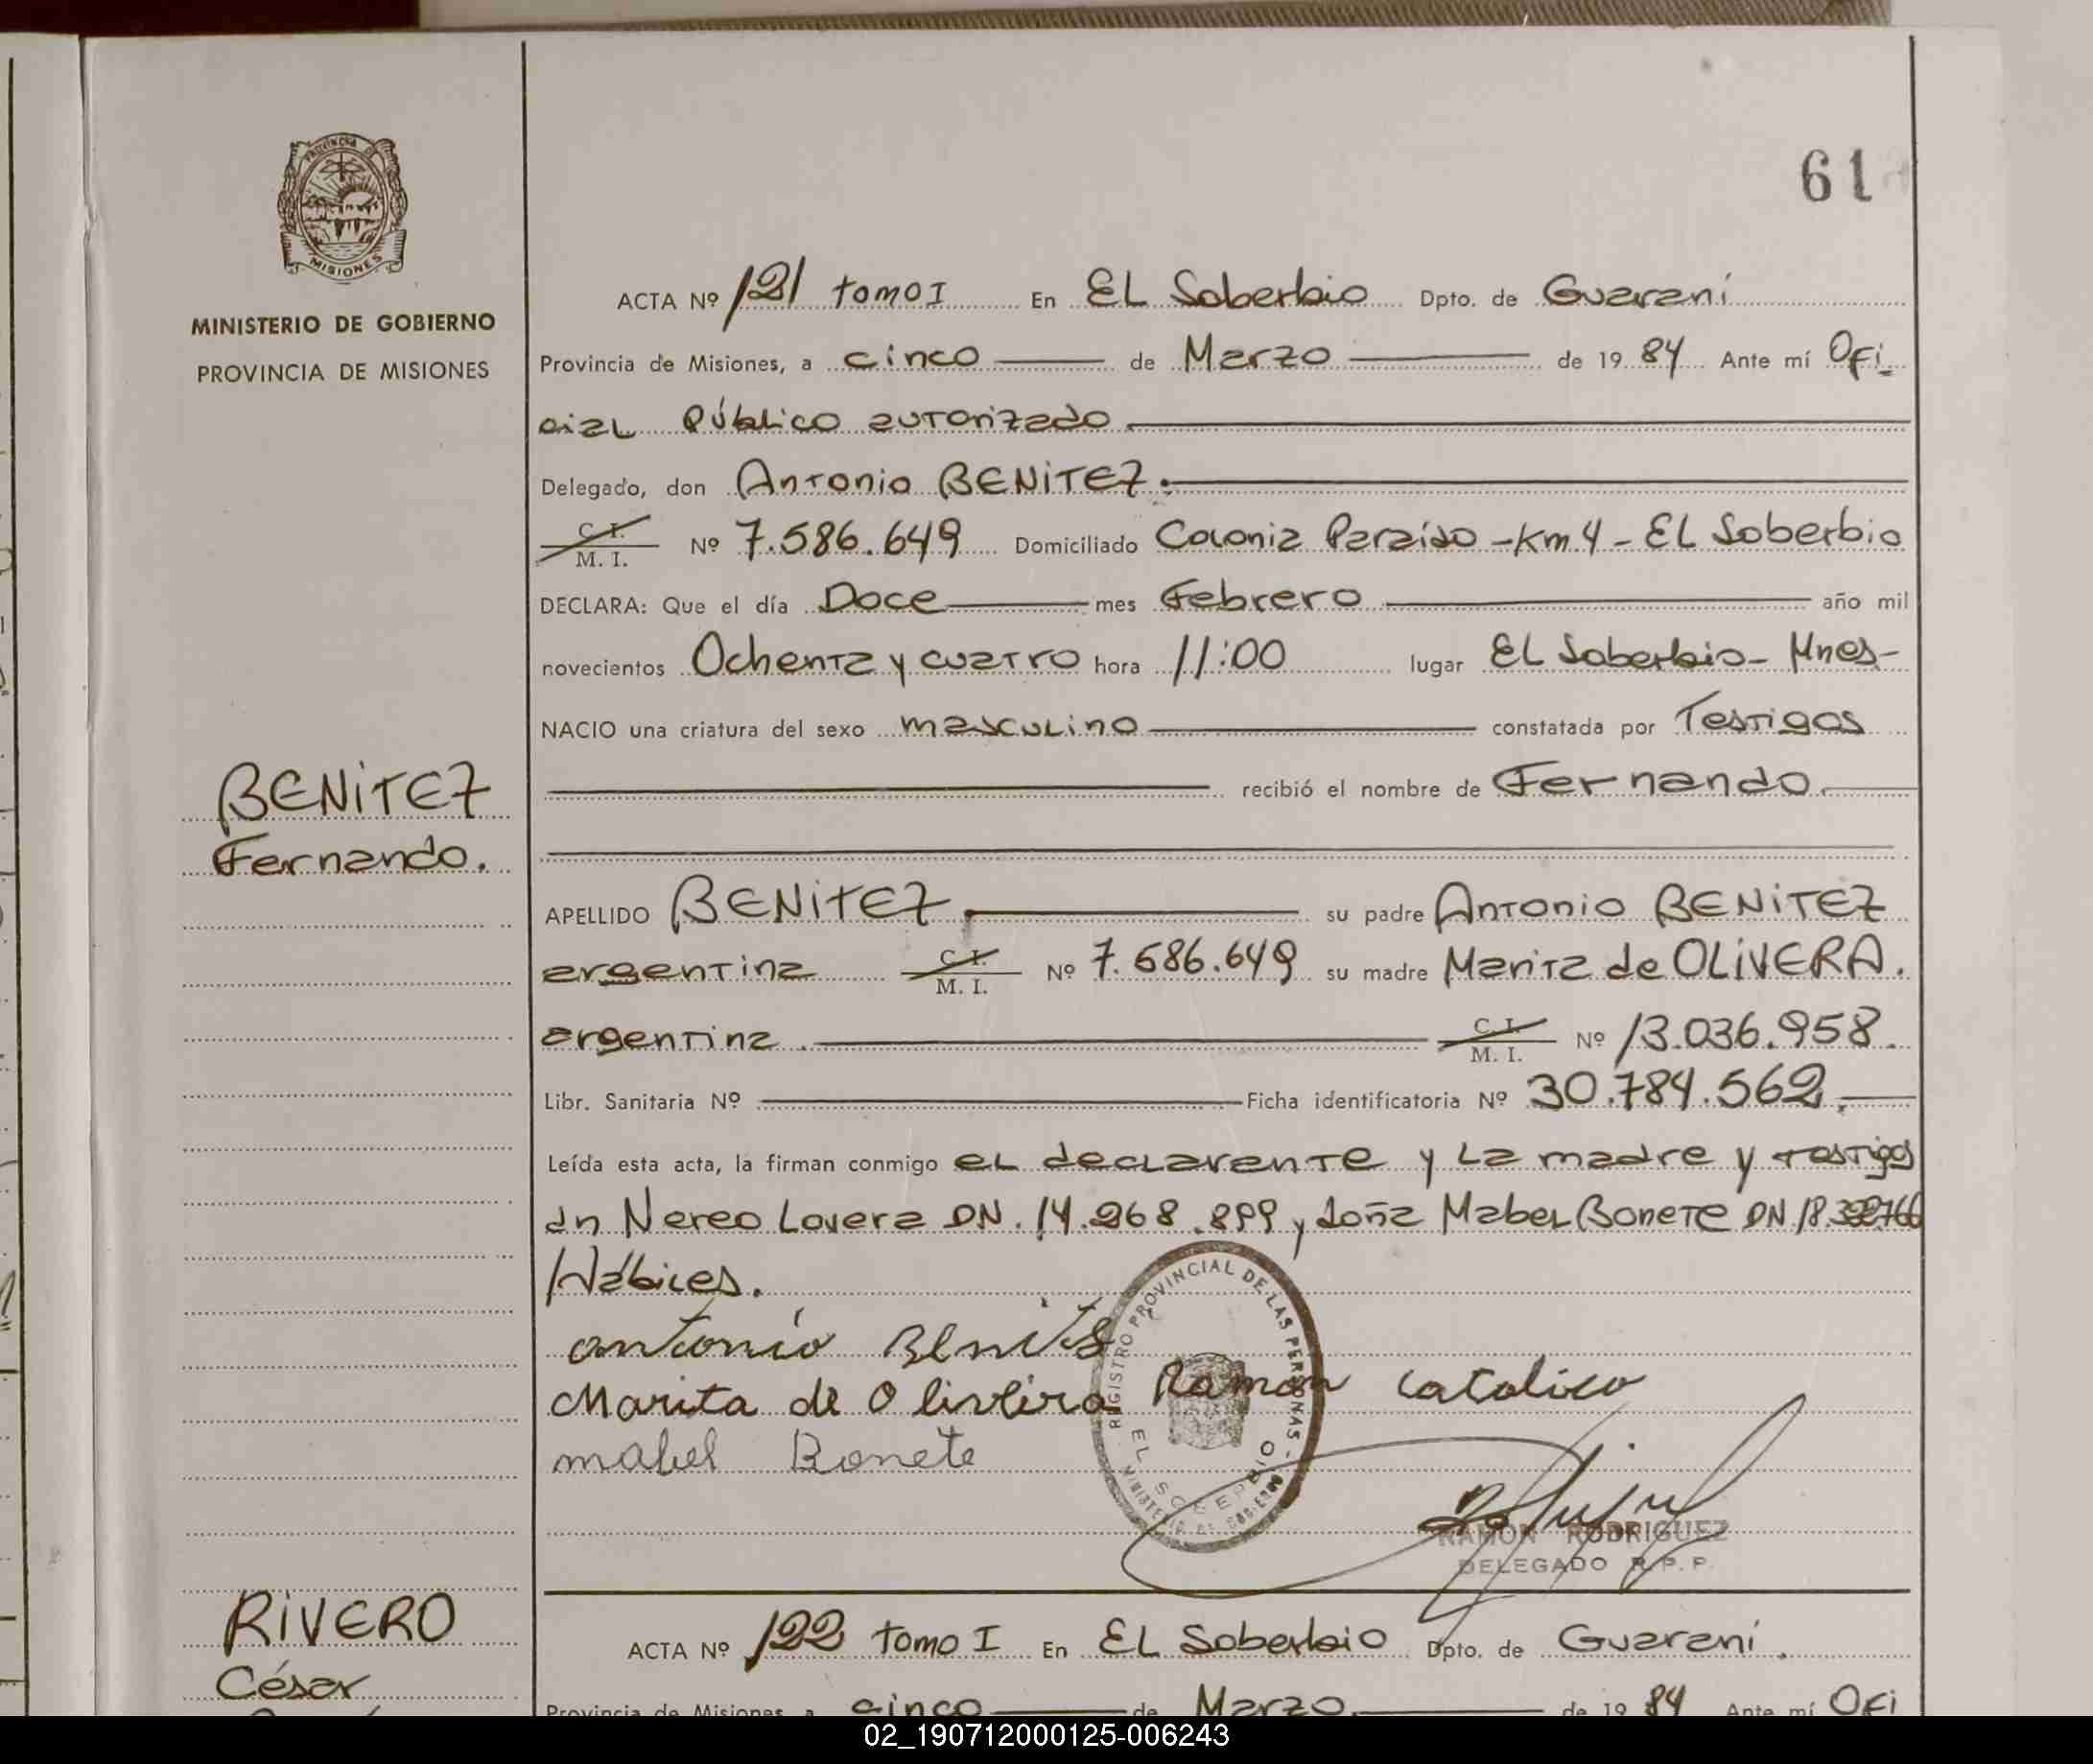 61
PROVINCIA DE
MISIONES
MINISTERIO DE GOBIERNO
PROVINCIA DE MISIONES
ACTA Nº 121 tomo I En EL Soberbio Dpto. de Guaraní
Provincia de Misiones, a cinco de Marzo de 19 84 Ante mí Ofi_
cial Público autorizado
Delegado, don Antonio BENITEZ.
C. I.
M. I. Nº 7.586.649 Domiciliado Colonia Paraíso - Km. 4 - EL Soberbio
DECLARA: Que el día Doce mes Febrero año mil
novecientos Ochenta y cuatro hora 11:00 lugar EL Soberbio - Mnes-
NACIO una criatura del sexo masculino constatada por Testigos
recibió el nombre de Fernando.
BENITEZ
Fernando.
APELLIDO BENITEZ. su padre Antonio BENITEZ
argentina C. I.
M. I. Nº 7.686.649 su madre Marita de OLIVERA.
argentina. C. I.
M. I. Nº 13.036.958.
Libr. Sanitaria Nº Ficha identificatoria Nº 30.784.562.
Leída esta acta, la firman conmigo el declarante y La madre y testigos
dn Nereo Lovera DN. 14.268.899 y doña Mabel Bonete DN 18.
Hábiles.
antonio Benits
Marita de Oliveira Ramon Catolico
mabel Bonete
REGISTRO PROVINCIAL DE LAS PERSONAS -
EL SOBERBIO
MINISTERIO DE GOBIERNO
RAMON RODRIGUEZ
DELEGADO R. P. P.
RIVERO
César
ACTA Nº 122 tomo I En EL Soberbio Dpto. de Guaraní.
Provincia de Misiones, a cinco de Marzo de 19 84 Ante mí Ofi
02_190712000125-006243